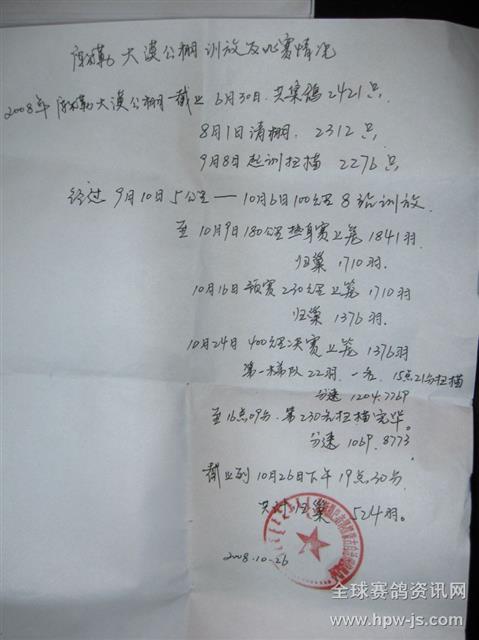 库尔勒大漠公棚训放及比赛情况
2008年库尔勒大漠公棚截止6月30日.共集鸽2421只.
8月1日清棚. 2312只
9月8日起训扫描 2276只
经过9月10日5公里——10月6日100公里8站训放.
至10月9日180公里热身赛上笼1841羽.
归巢1710羽.
10月16日预赛230公里上笼1710羽
归巢1376羽.
10月24日400公里决赛上笼1376羽
第一梯队22羽.一名.15点21分扫描
分速1204.7769
至16点09分.第230名扫描完毕。
分速1069.8773
截止到10月26日下午19点30分.
共计归巢524羽。
2008.10-26
全球赛鸽资讯网
www.hpw-js.com